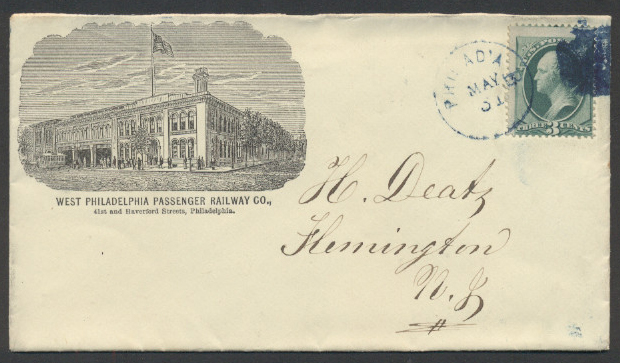 WEST PHILADELPHIA PASSENGER RAILWAY CO.,
41st and Haverford Streets, Philadelphia.
PHILAD'A
MAY
3 CENTS
H. Deatz
Flemington
N. J